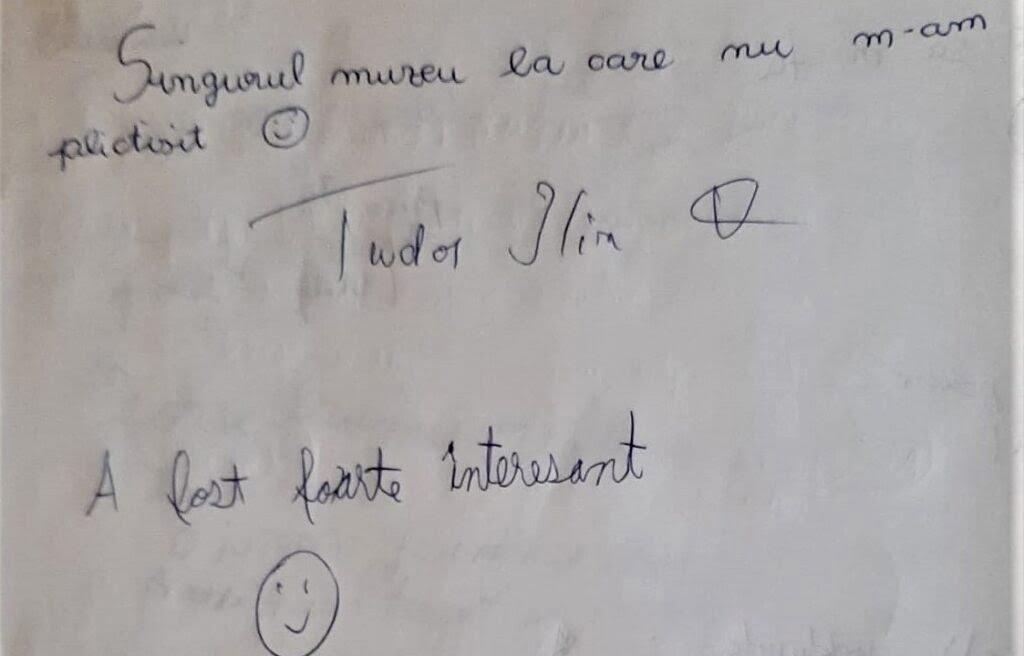 Singurul muzeu la care nu m-am
plictisit ☺
Tudor Ilin
A fost foarte interesant
☺